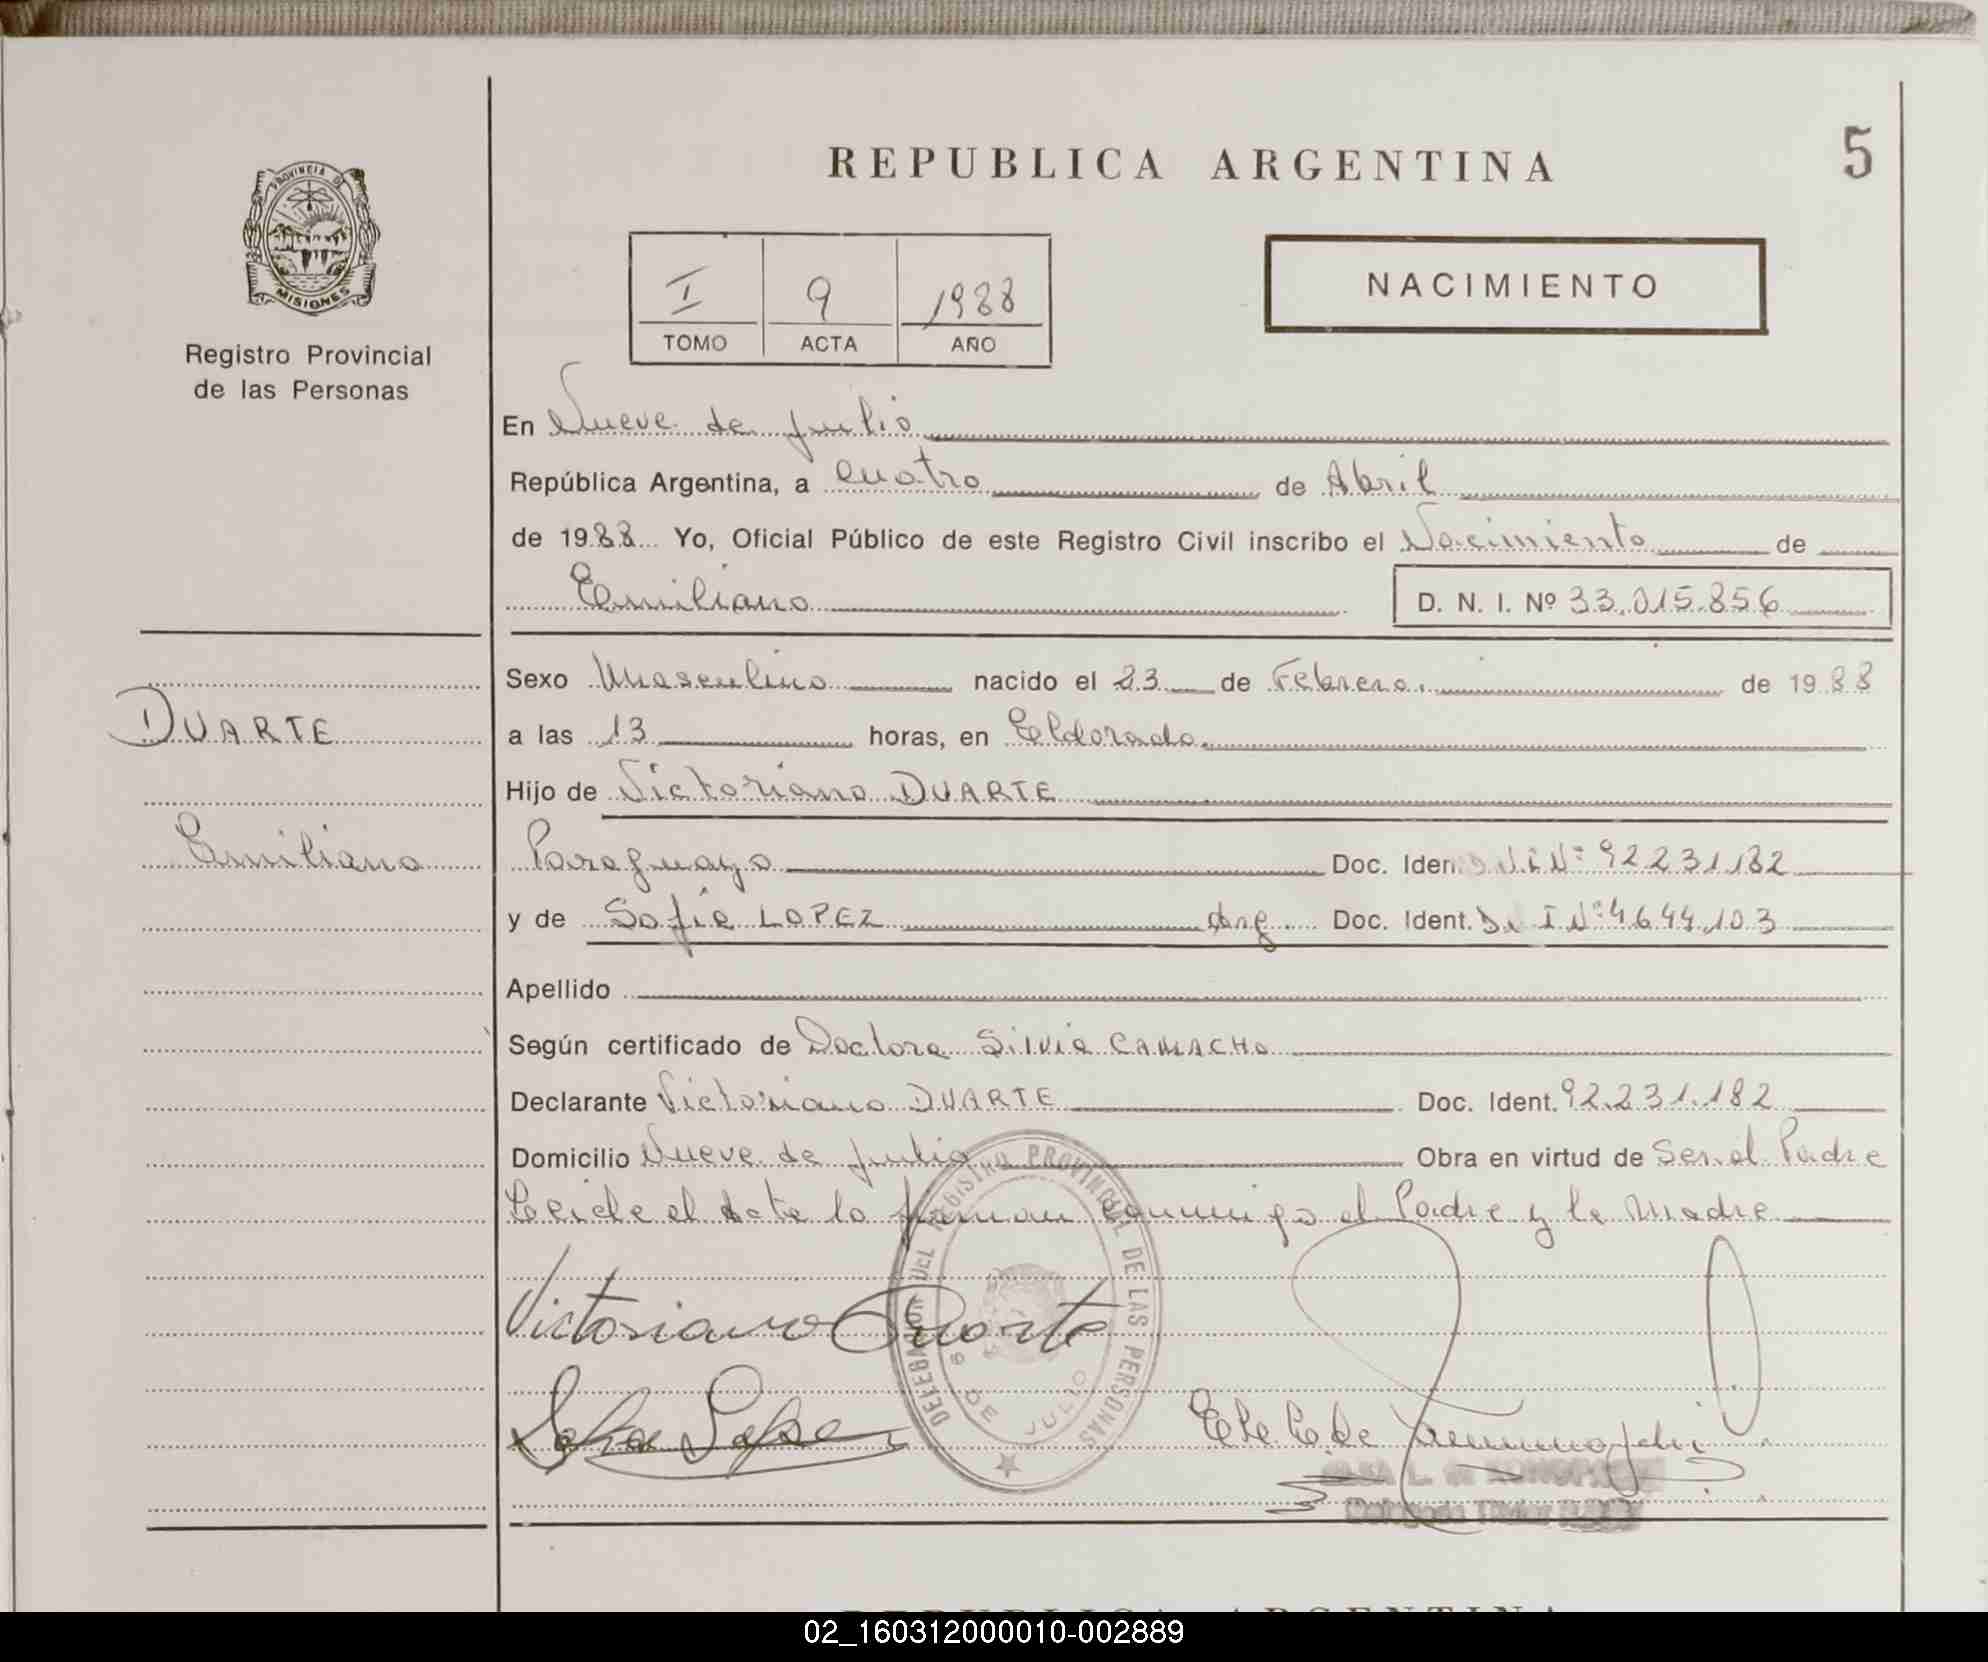 REPUBLICA ARGENTINA
5
PROVINCIA DE
MISIONES
Registro Provincial
de las Personas
I 9 1988
TOMO ACTA AÑO
NACIMIENTO
En Nueve de julio
República Argentina, a cuatro de Abril
de 1988 Yo, Oficial Público de este Registro Civil inscribo el Nacimiento de
Emiliano D. N. I. Nº 33.015.856
Sexo Masculino nacido el 23 de Febrero de 1988
DUARTE
a las 13 horas, en Eldorado
Hijo de Victoriano DUARTE
Emiliano
Paraguayo Doc. Iden D.N.I Nº 92231.182
y de Sofia LOPEZ Arg Doc. Ident. D. I Nº 4.644.103
Apellido
Según certificado de Doctora Silvia CAMACHO
Declarante Victoriano DUARTE Doc. Ident. 92.231.182
Domicilio Nueve de julio Obra en virtud de Ser el Padre
Leida el Acta la firman conmigo el Padre y la Madre
REGISTRO PROVINCIAL DE LAS PERSONAS
9 DE JULIO
Victoriano Duarte
Delegada Titular
REPUBLICA ARGENTINA
02_160312000010-002889